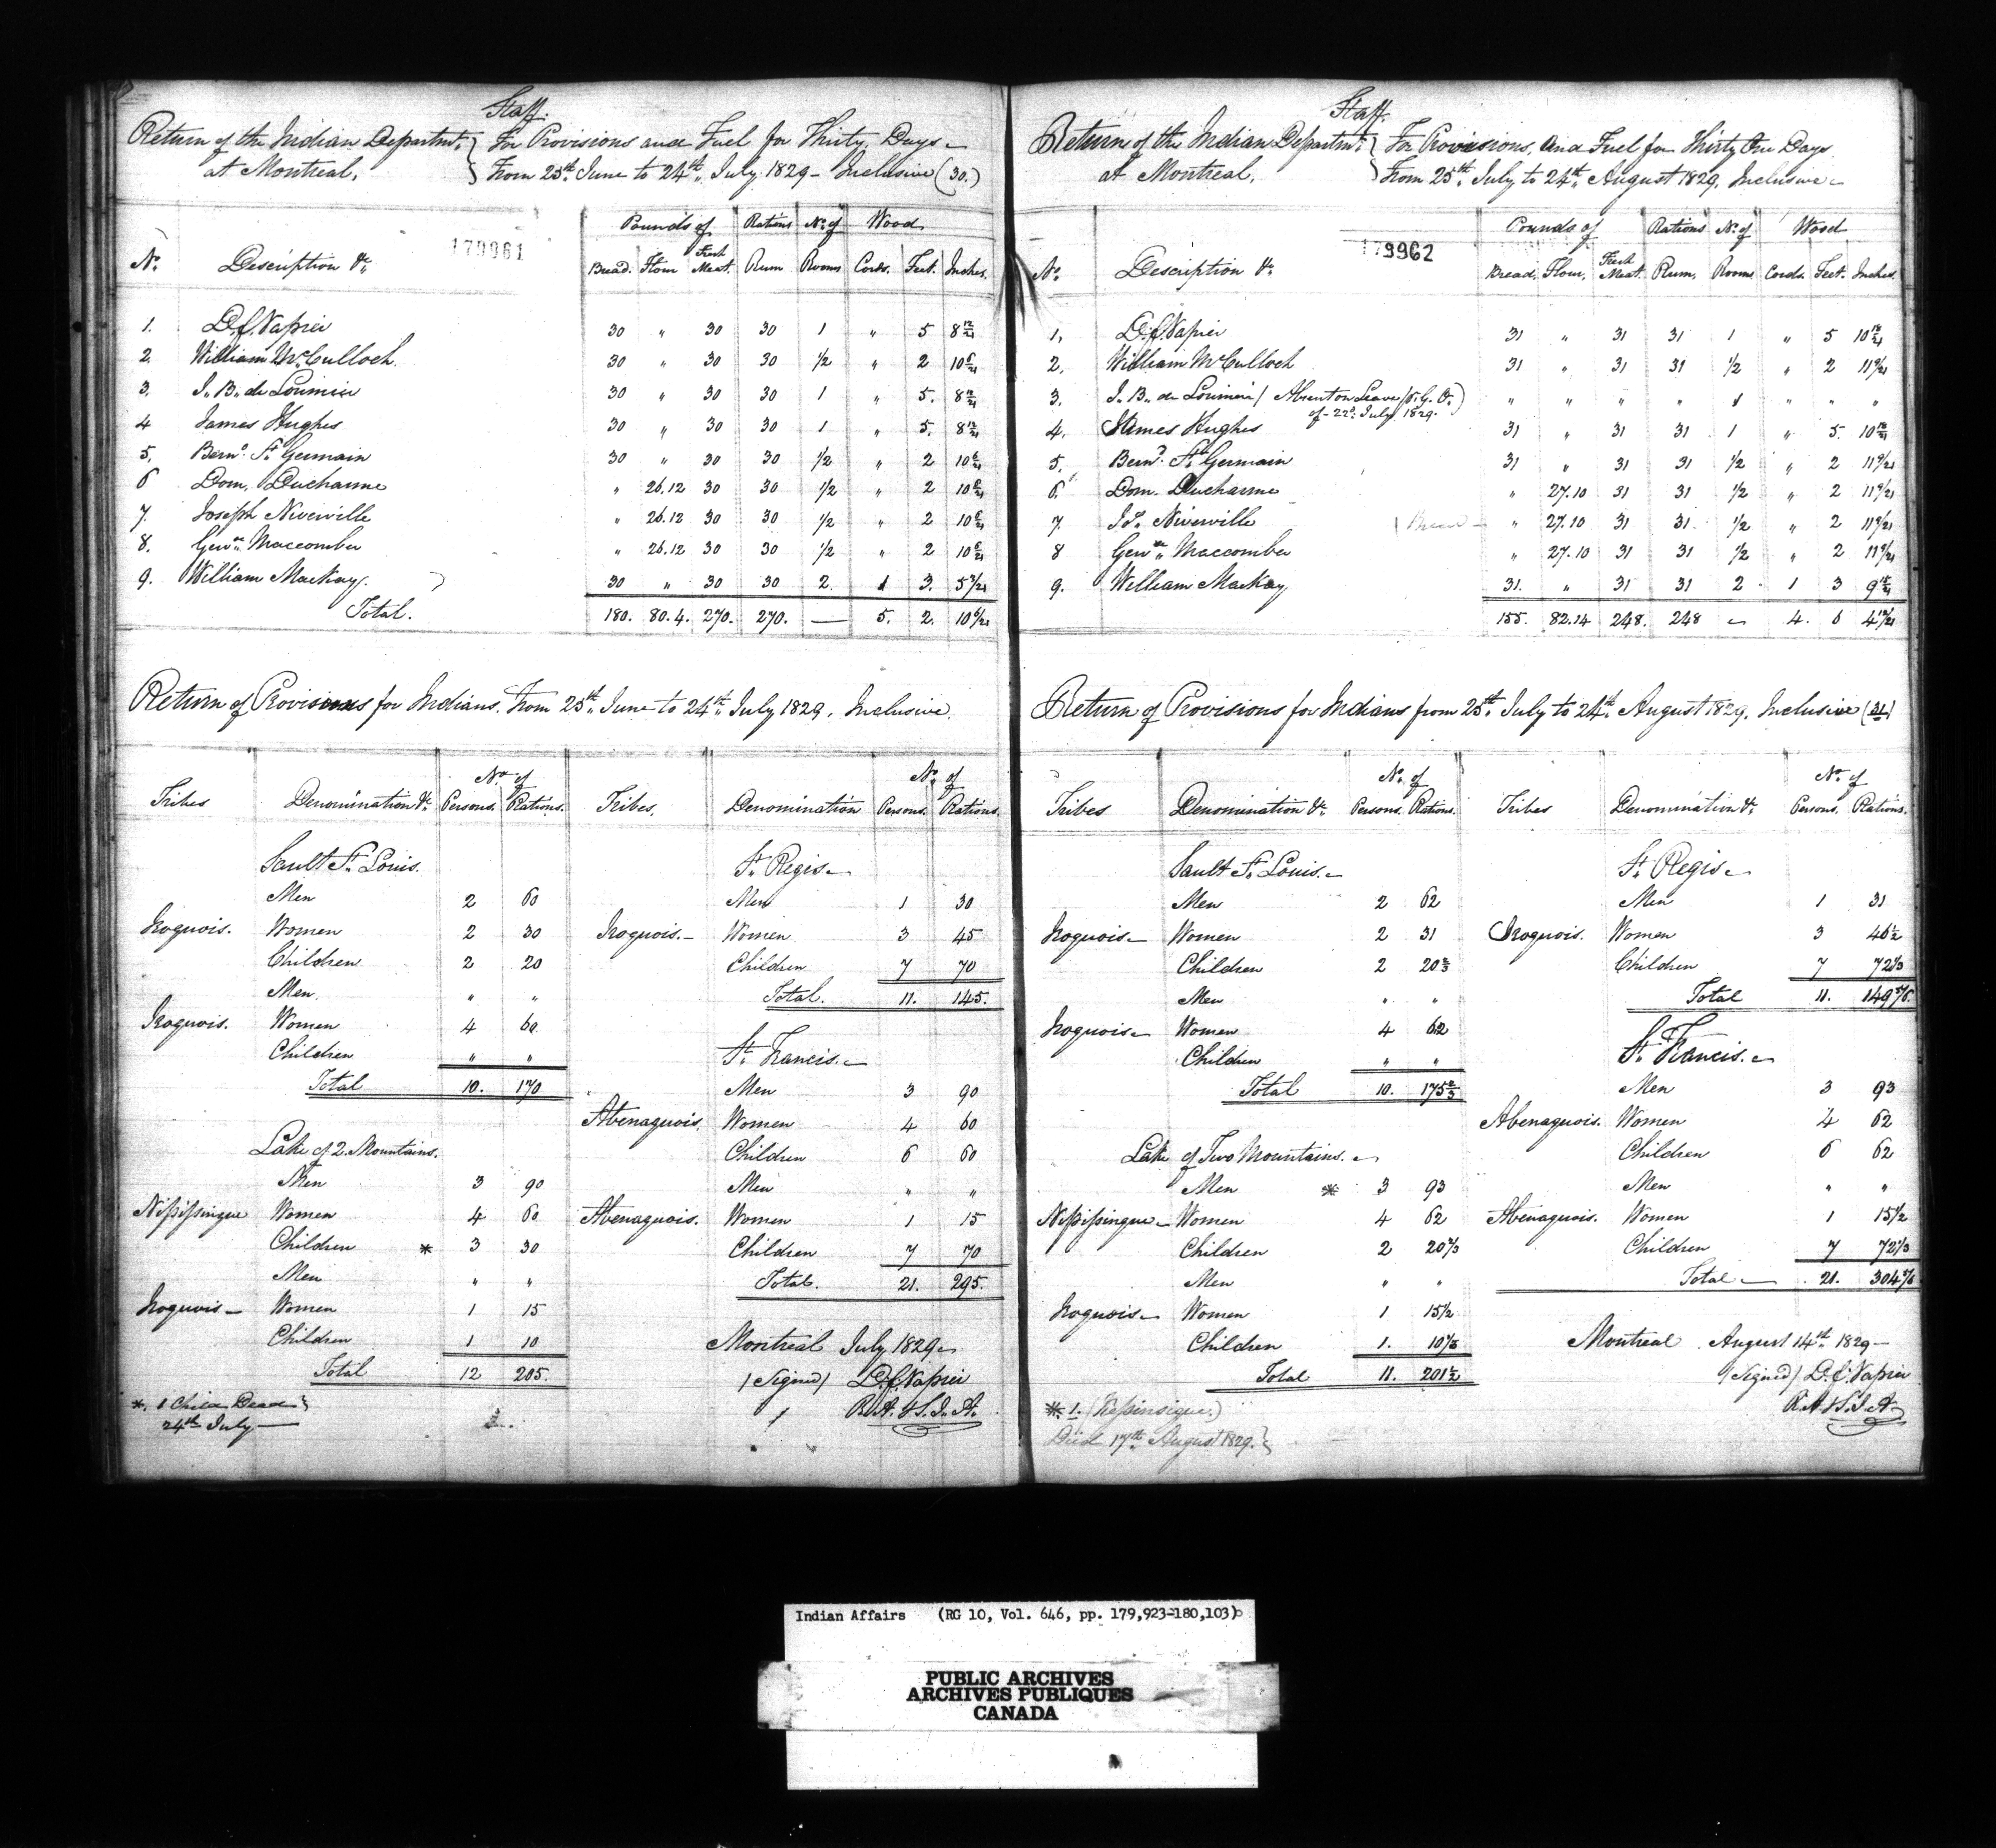 Staff.
Return of the Indian Departmt. } For Provisions and Fuel for Thirty Days
at Montreal, } From 25th June to 24th July 1829 - Inclusive (30.)
179961
Pounds of Rations No. of Wood
No. Description &c. Bread. Flour Fresh Meat. Rum Rooms Cords. Feet. Inches.
1. D.C. Napier 30 " 30 30 1 " 5 8 12/21
2. William McCulloch 30 " 30 30 1/2 " 2 10 6/21
3. J. B. de Lorimier 30 " 30 30 1 " 5. 8 12/21
4 James Hughes 30 " 30 30 1 " 5. 8 12/21
5. Bernd. St. Germain 30 " 30 30 1/2 " 2 10 6/21
6 Dom. Ducharme " 26.12 30 30 1/2 " 2 10 6/21
7. Joseph Niverville " 26.12 30 30 1/2 " 2 10 6/21
8. Genve. Maccomber " 26.12 30 30 1/2 " 2 10 6/21
9. William MacKay. 30 " 30 30 2. 1 3. 5 3/21
Total. 180. 80.4. 270. 270. — 5. 2. 10 6/21
Return of Provisions for Indians. From 25th June to 24th July 1829. Inclusive.
No. of No. of
Tribes Denomination &c. Persons. Rations. Tribes. Denomination Persons. Rations.
Sault St. Louis.
Men 2 60
Iroquois. Women 2 30
Children 2 20
Men. " "
Iroquois. Women 4 60
Children " "
Total 10. 170
Lake of 2 Mountains.
Men 3 90
Nippissingue Women 4 60
Children * 3 30
Men " "
Iroquois - Women 1 15
Children 1 10
Total 12 205.
*. 1 Child Dead }
24th July
St. Regis
Men 1 30
Iroquois. - Women 3 45
Children 7 70
Total. 11. 145.
St. Francis.
Men 3 90
Abenaquois. Women 4 60
Children 6 60
Men " "
Abenaquois. Women 1 15
Children 7 70
Total. 21. 295.
Montreal July 1829
/Signed/ D.C. Napier
R.A. & S.I.A.
Staff.
Return of the Indian Departmt. } For Provisions, and Fuel for Thirty One Days
at Montreal. } From 25th July to 24th August 1829, Inclusive
179962
Pounds of Rations No. of Wood
No. Description &c. Bread. Flour, Fresh Meat. Rum, Rooms Cords. Feet. Inches.
1, D.C. Napier 31 " 31 31 1 " 5 10 18/21
2. William McCulloch 31 " 31 31 1/2 " 2 11 9/21
3. J. B. de Lorimier / Absent on Leave p. G. O. ) " " " " " " "
of 22d. July 1829.
4. James Hughes 31 " 31 31 1 " 5. 10 18/21
5. Bernd. St. Germain 31 " 31 31 1/2 " 2 11 9/21
6. Dom. Ducharme " 27.10 31 31 1/2 " 2 11 9/21
7. Jos. Niverville " 27.10 31 31. 1/2 " 2 11 9/21
8 Genve. Maccomber " 27.10 31 31 1/2 " 2 11 9/21
9. William MacKay 31. " 31 31 2 1 3 9 15/21
155. 82.14 248. 248 4. 6 4 12/21
Return of Provisions for Indians from 25th July to 24th August 1829. Inclusive (31)
No. of No. of
Tribes Denomination &c. Persons. Rations. Tribes Denomination &c. Persons. Rations.
Sault St. Louis.
Men 2 62
Iroquois Women 2 31
Children 2 20 2/3
Men " "
Iroquois Women 4 62
Children " "
Total 10. 175 2/3
Lake of Two Mountains.
Men * 3 93
Nippissingue Women 4 62
Children 2 20 2/3
Men " "
Iroquois Women 1 15 1/2
Children 1. 10 1/3
Total 11. 201 1/2
*. 1. (Nepinsigue.)
Died 17th August 1829. }
St. Regis
Men 1 31
Iroquois. Women 3 46 1/2
Children 7 72 1/3
Total 11. 149 5/6.
St. Francis.
Men 3 93
Abenaquois. Women 4 62
Children 6 62
Men " "
Abenaquois. Women 1 15 1/2
Children 7 72 1/3
Total 21. 304 5/6
Montreal August 14th 1829
/Signed/ D.C. Napier
R.A. & S.I.A.
Indian Affairs (RG 10, Vol. 646, pp. 179,923-180,103)
PUBLIC ARCHIVES
ARCHIVES PUBLIQUES
CANADA